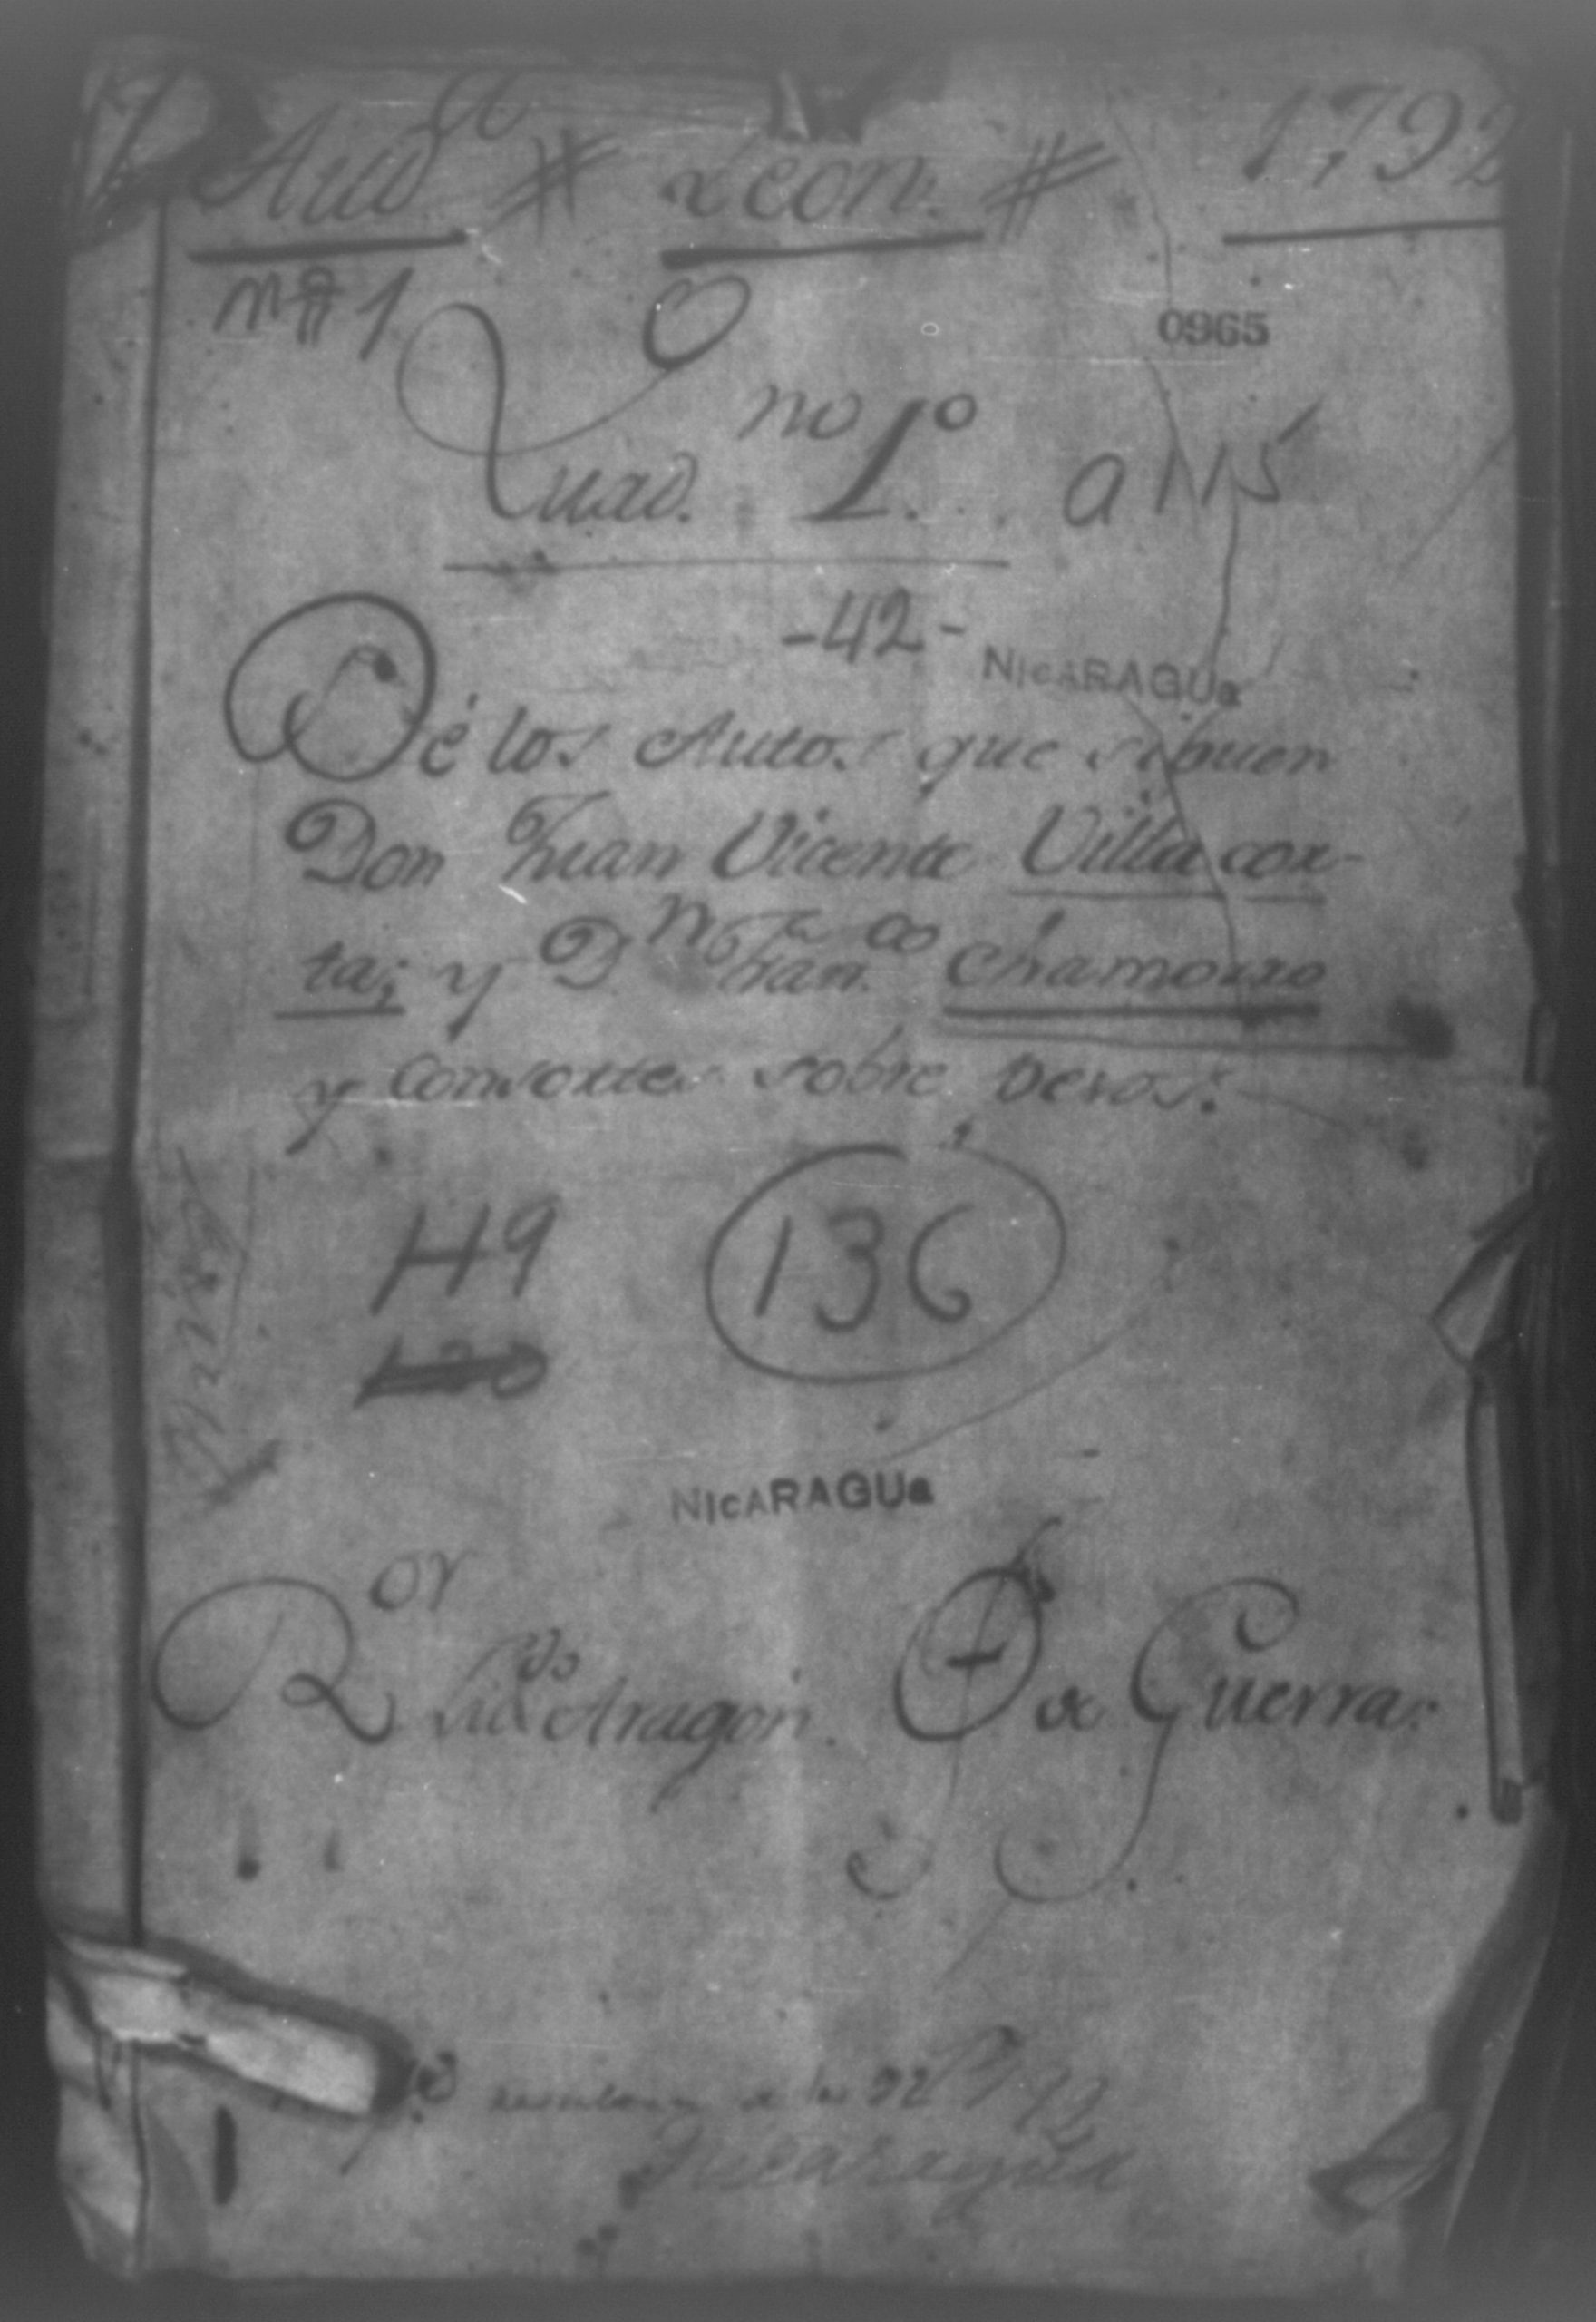 Aud.ª # Leon. # 1792
nº 1
0965
Quad.no 1º a 115
-42-
NIcARAGUa
Dé los Autos que siguen
Don Juan Vicente Villacor-
ta; y Dn Fran.co Chamorro
y Consortes sobre pesos.
119
136
NIcARAGUa
Ror Licdo Aragon. Guerra.
de la 92
Nicaragua